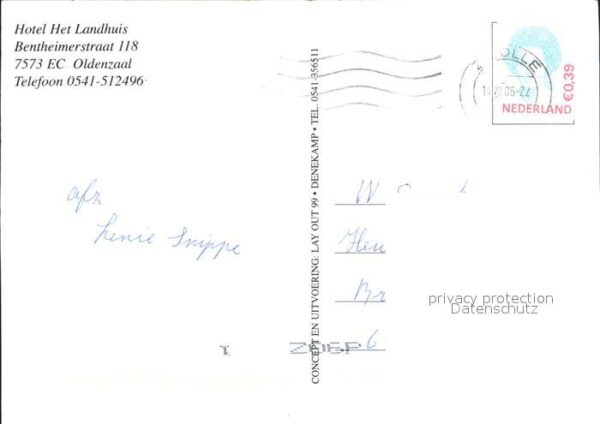 Hotel Het Landhuis
Bentheimerstraat 118
7573 EC Oldenzaal
Telefoon 0541-512496
ZWOLLE
€0,39
NEDERLAND
afz
Lenie Snippe
CONCEPT EN UITVOERING: LAY OUT 99 • DENEKAMP • TEL. 0541-356511
W
Heu
Br
6
privacy protection
Datenschutz